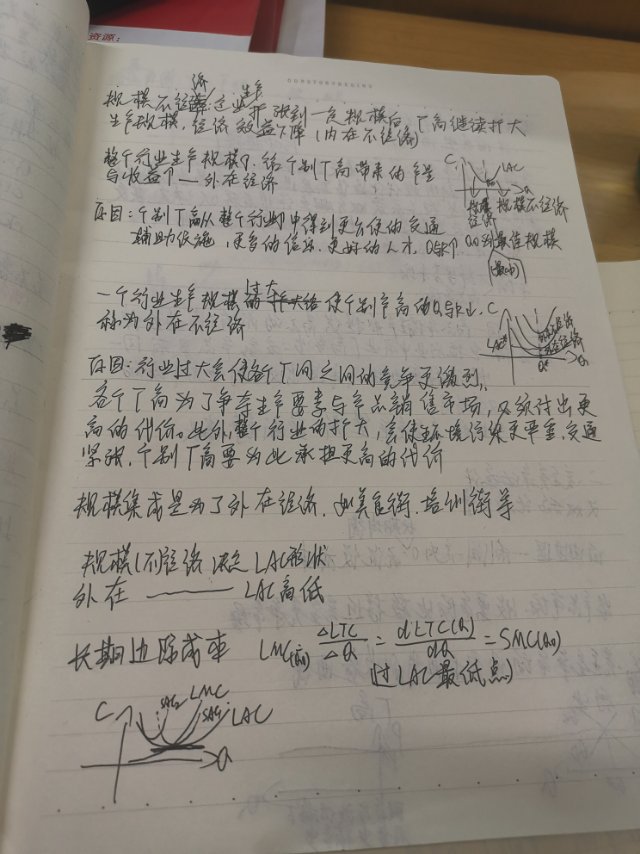 资源:
规模不经济
生产规模,经济效益下降(内在不经济)
整个行业生产规模↑,给个别厂商带来的产量
与收益↑——外在经济
C
LAC
规模经济
规模不经济
原因:个别厂商从整个行业中得到更方便的交通
辅助设施,更多的信息,更好的人才,
最佳规模
一个行业生产规模过大 使个别产商的
称为外在不经济
C
LAC
Q
原因:行业过大会使各个厂间之间的竞争更激烈,
各个厂商为了争夺生产要素与产品销售市场,必须付出更
高的代价。此外,整个行业的扩大,会使环境污染更严重,交通
紧张,个别厂商要为此承担更高的代价
规模集成是为了外在经济,如美食街,培训街等
规模(不)经济 决定 LAC形状
外在 —— LAC高低
长期边际成本 LMC(Q) ΔLTC/ΔQ = dLTC(Q)/dQ = SMC(Q₀)
(过LAC最低点)
C
SAC₂ LMC
SAC₁ LAC
Q